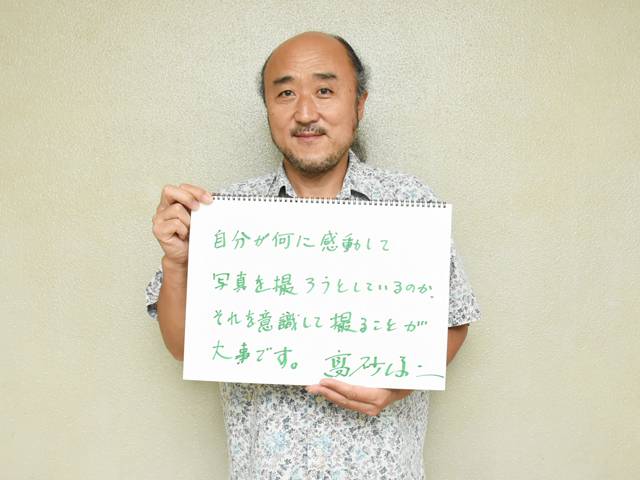 自分が何に感動して
写真を撮ろうとしているのか、
それを意識して撮ることが
大事です。 高砂淳二